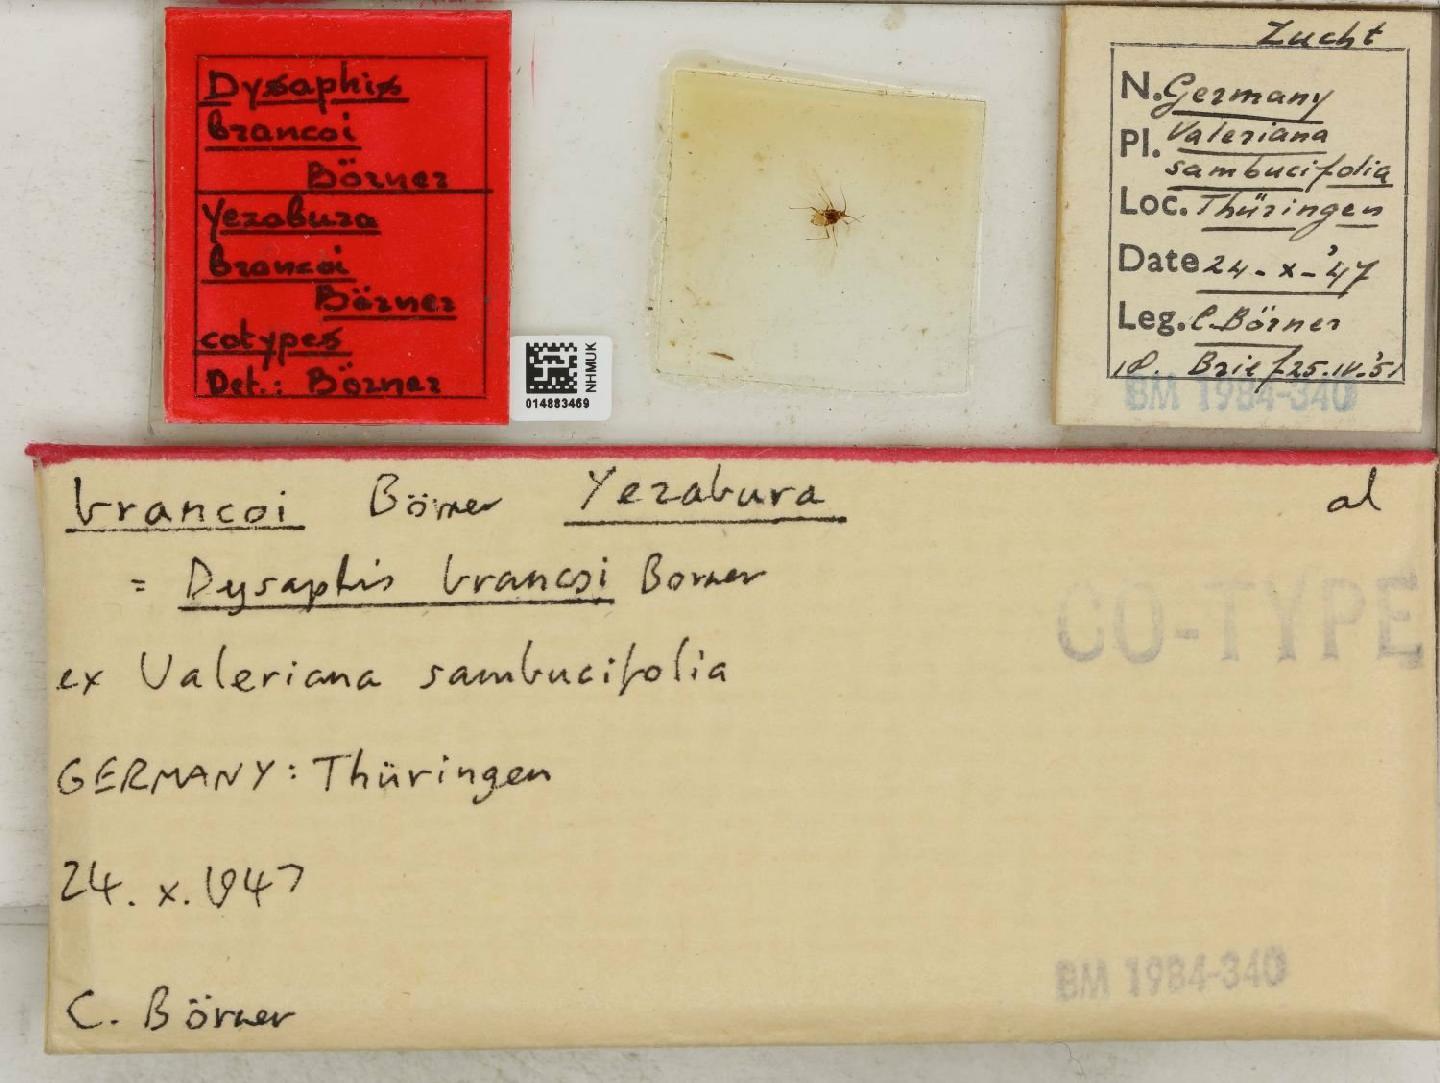 Dysaphis
brancoi
Börner
Yezabura
brancoi
Börner
cotypes
Det.: Börner
NHMUK
014883469
Zucht
N. Germany
Pl. Valeriana
sambucifolia
Loc. Thüringen
Date 24-x-'47
Leg. C. Börner
Brief 25.IV.'51
BM 1984-340
brancoi Börner Yezabura al
= Dysaphis brancoi Borner
CO-TYPE
ex Valeriana sambucifolia
GERMANY: Thüringen
24. x. 1947
BM 1984-340
C. Börner